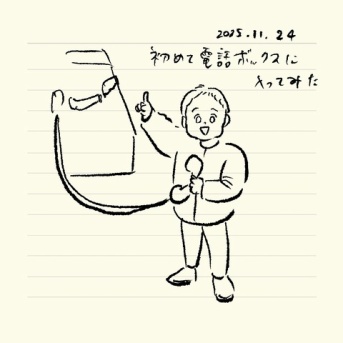 2025.11.24
初めて電話ボックスに
入ってみた